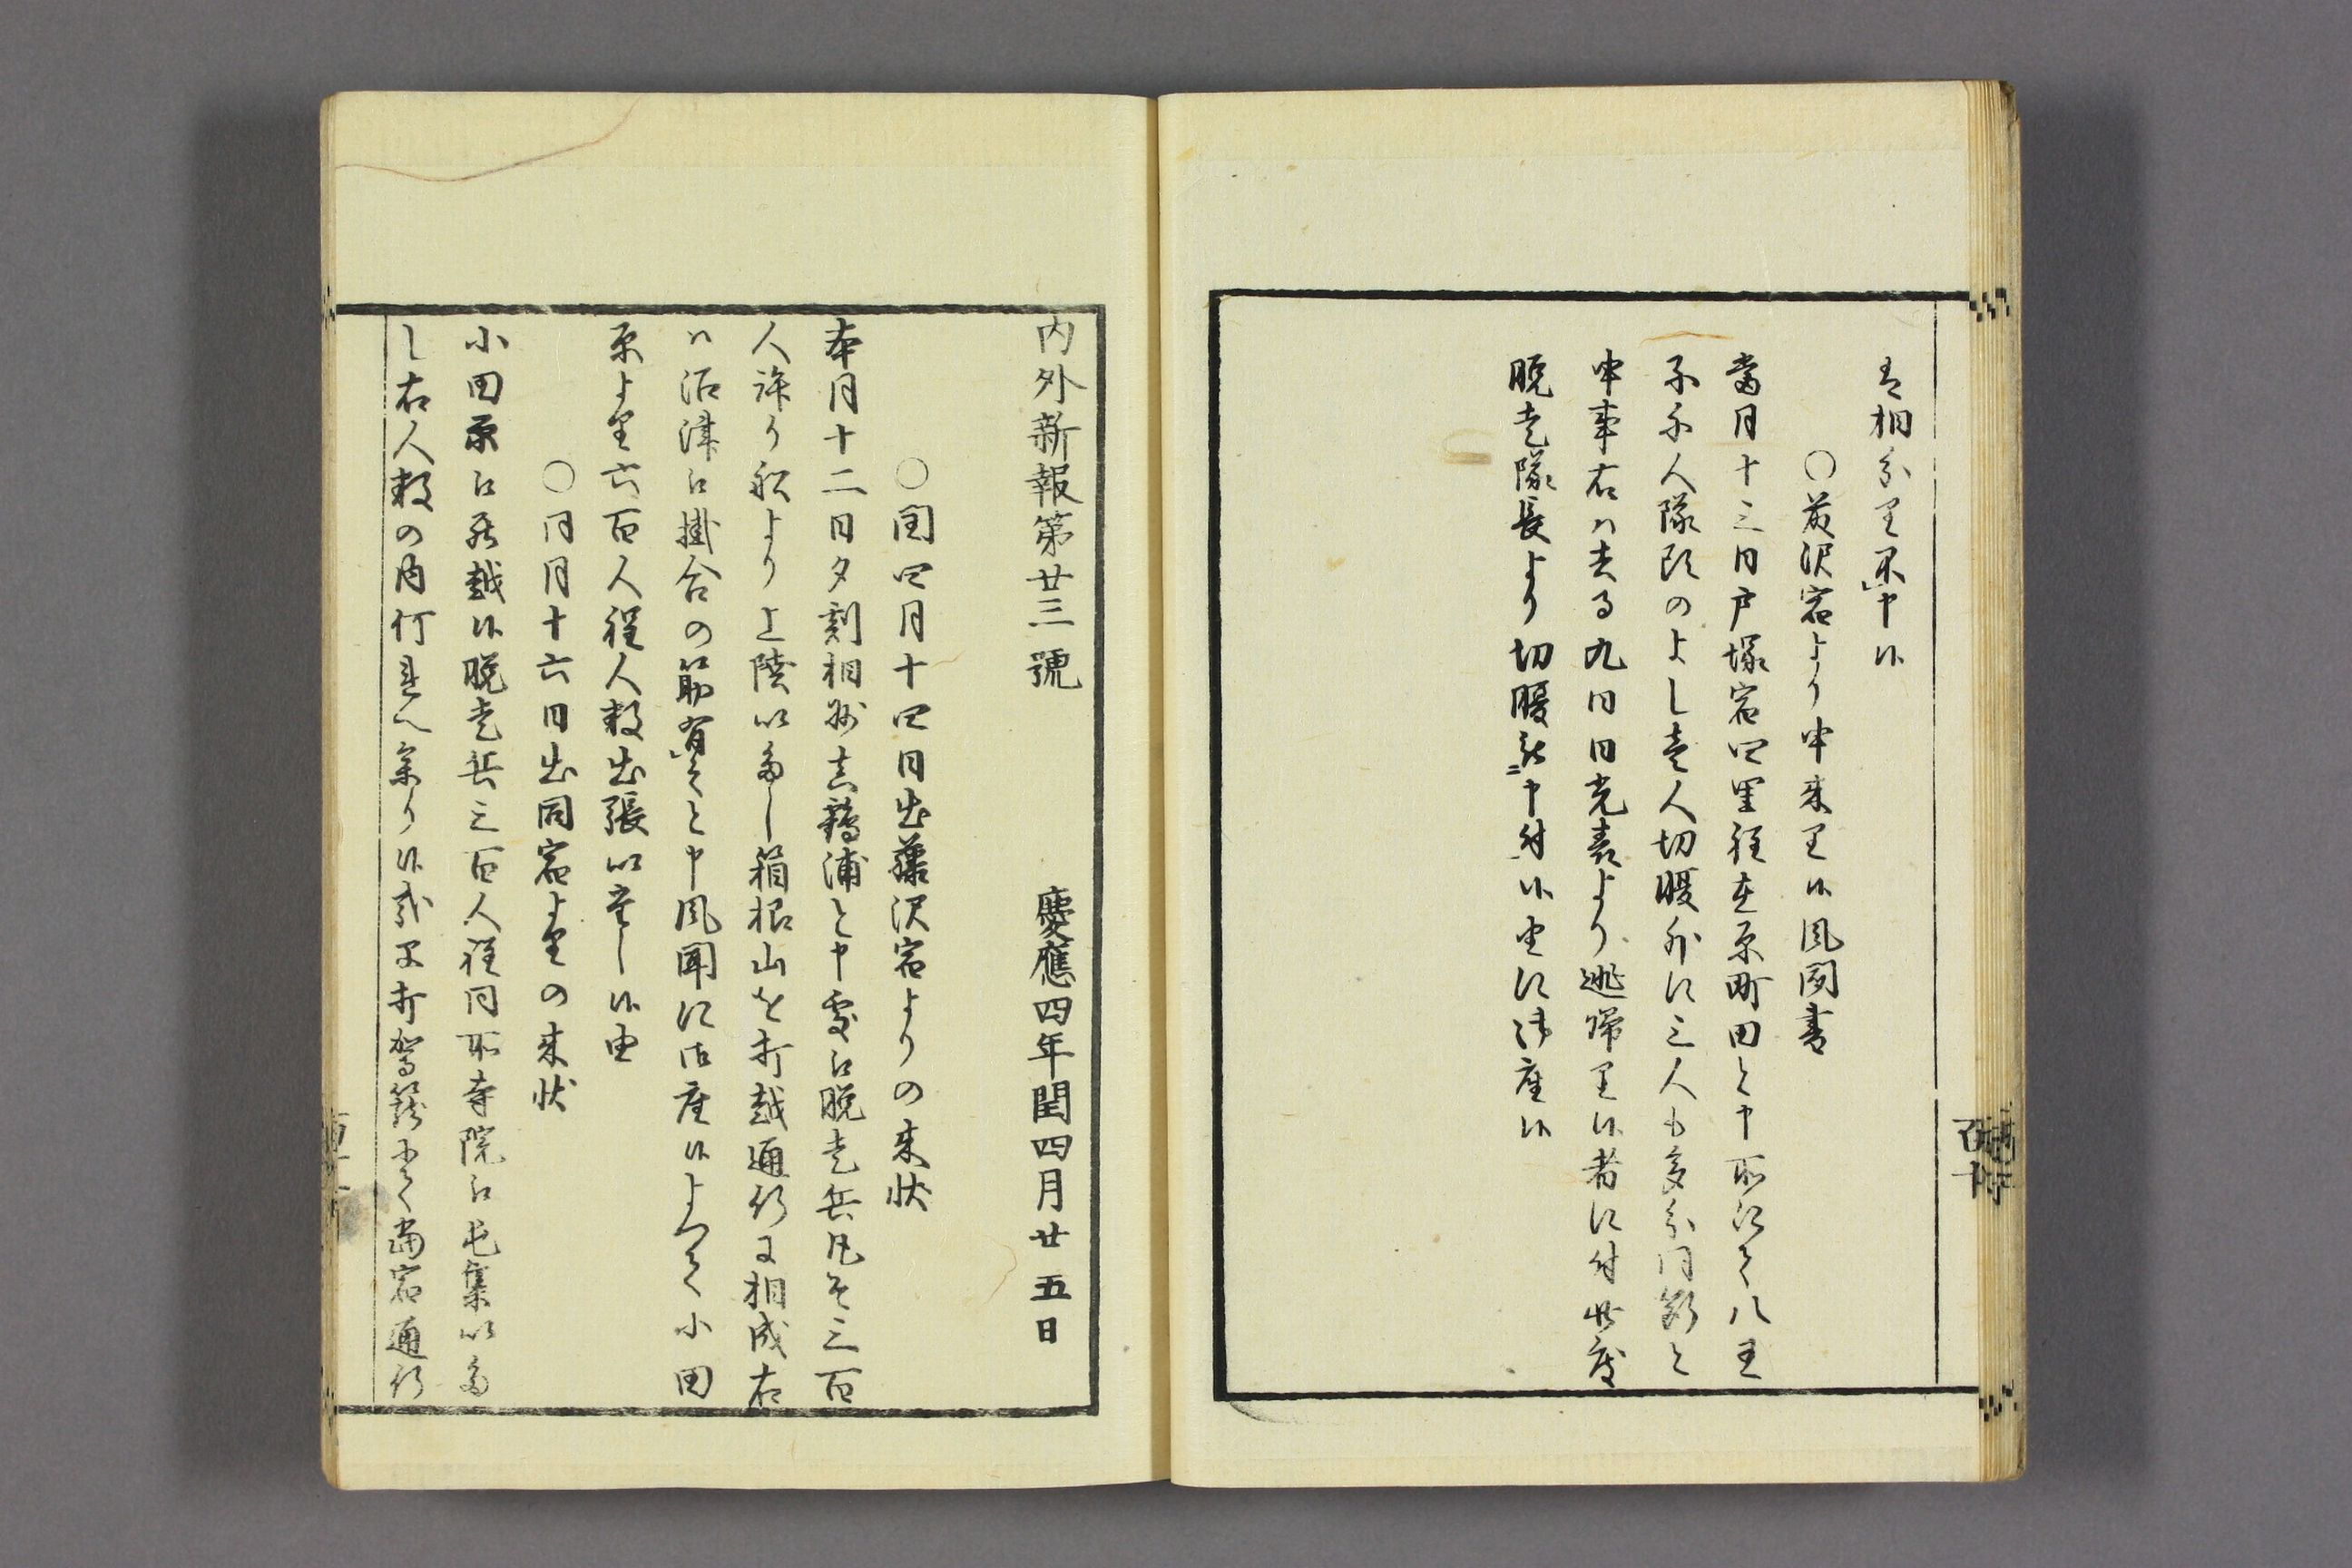 は相分り不申候
○藤沢宿より申来り候風聞書
當月十三日戸塚宿四里程在原町田と申所にて八王
子千人隊頭のよし壱人切腹外に三人も多分同斷と
申事右ハ去る九日日光表より逃帰り候者に付此度
脱走隊長より切腹被申付候由に御座候
内外新報第廿三號 慶應四年閏四月廿五日
○閏四月十四日出藤沢宿よりの来状
本月十二日夕刻相州真鶴浦と申處江脱走兵凡そ三百
人許り船より上陸いたし箱根山を打越通行に相成右
ハ沼津江掛合の筋有之と申風聞に御座候よつて小田
原より六百人程人数出張いたし候由
○同月十六日出同宿よりの来状
小田原江罷越候脱走兵三百人程同所寺院江屯集いた
し右人数の内何れへ参り候哉早打駕籠にて當宿通行